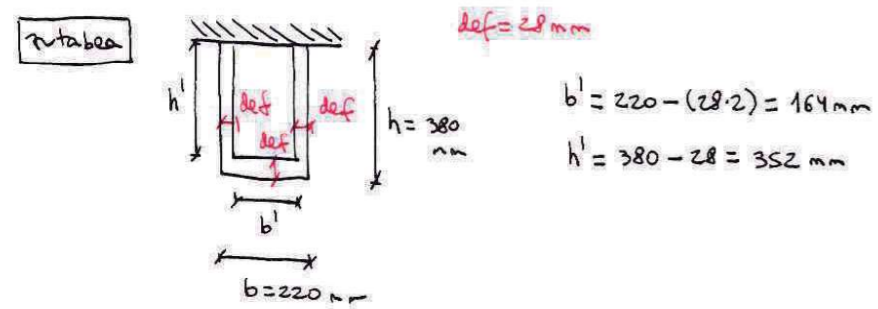 zutabea
def = 28 mm
h'
def
def
def
h = 380 mm
b'
b = 220 mm
b' = 220 - (28·2) = 164 mm
h' = 380 - 28 = 352 mm